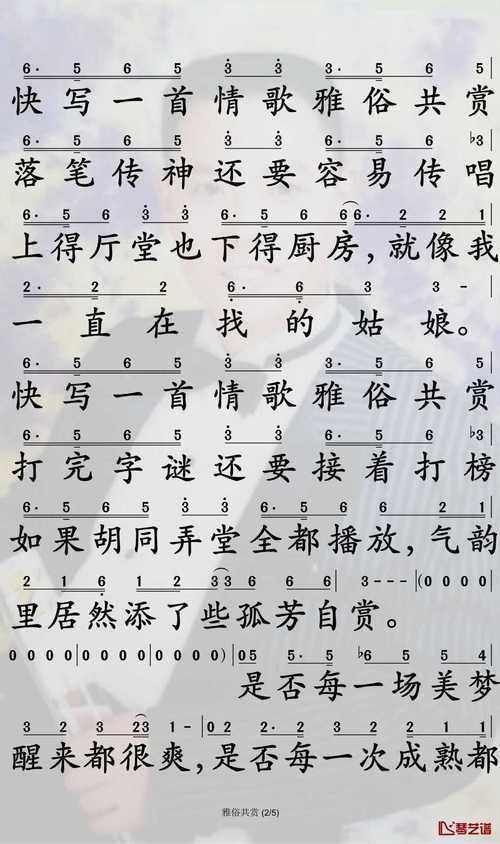 6· 5 6 5 3 3 3· 5 6 5|
快写一首情歌雅俗共赏
6· 5 6 5 3 3 3· 5 6 ♭3|
落笔传神还要容易传唱
6· 5 6 3 3 6· 5 6 6 6· 2 2 1|
上得厅堂也下得厨房,就像我
2· 2 2 6· 6 3 3 - |
一直在找的姑娘。
6· 5 6 5 3 3 3· 5 6 5|
快写一首情歌雅俗共赏
6· 5 6 5 3 3 5· 5 6 ♭3|
打完字谜还要接着打榜
6· 5 6 5 3 3 6· 5 6 6 6 2 1|
如果胡同弄堂全都播放,气韵
2 1 6 1 2 3 3 6 6 6|3 - - -|(0 0 0 0|
里居然添了些孤芳自赏。
0 0 0 0|0 0 0 0|0 0 0 0)|05 5· 5 ♭6 5 5 4|
是否每一场美梦
3 2 3 23 1 - |0 2 2· 2 3 2 2 1|
醒来都很爽,是否每一次成熟都
雅俗共赏 (2/5)
琴艺谱